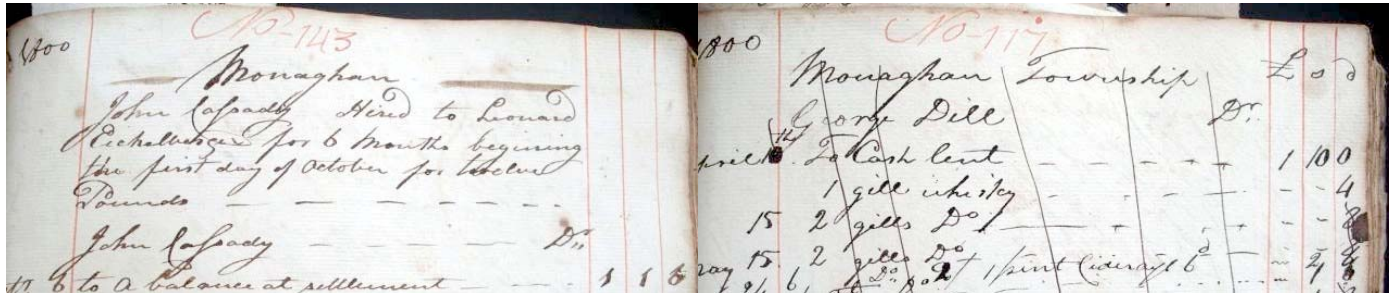 1800
No-143
Monaghan
John Cassady Hired to Leonard
Eichelberger for 6 Months begining
the first day of October for twelve
Pounds
John Cassady Dr.
6 to a balance at settlement 1 1 6
1800
No-117
Monaghan Township £ s d
George Dill Dr.
April To Cash lent 1 10 0
1 gill whisky 4
15 2 gills Do
May 15. 2 gills Do
1 pint Cider